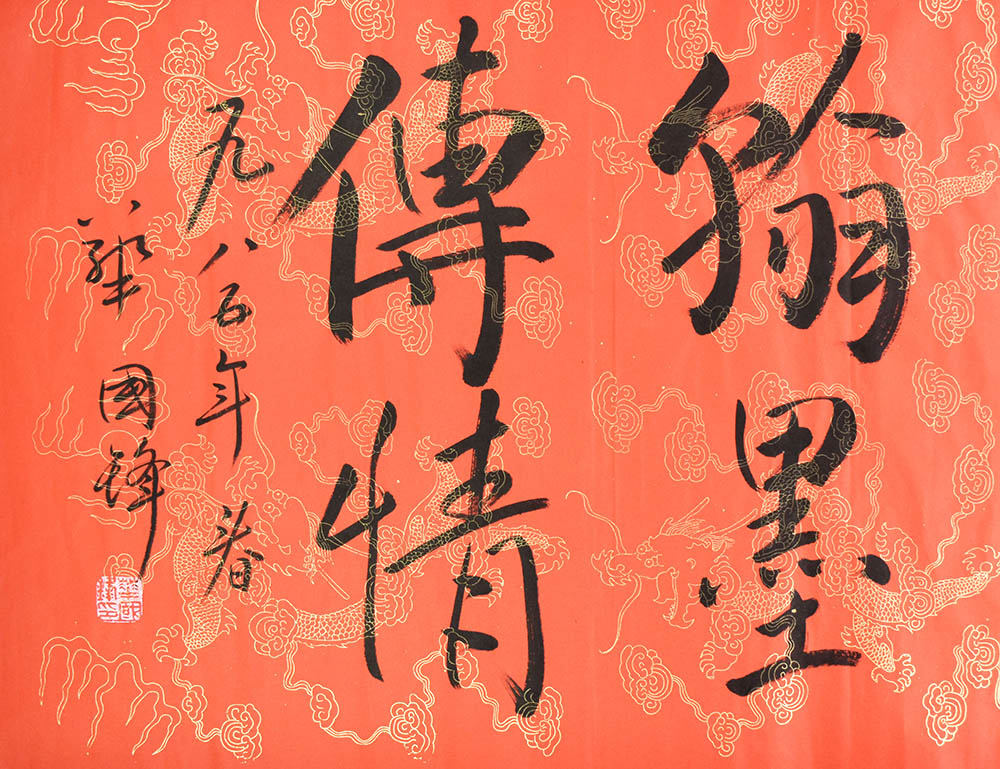 翰墨
傳情
九八五年春
華國鋒